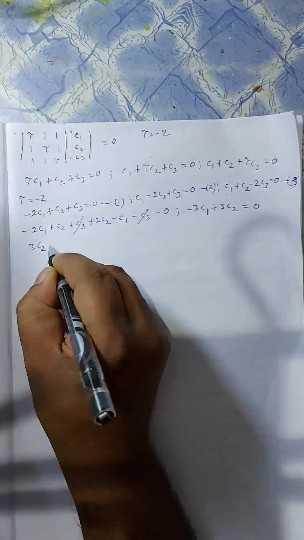 | r 1 1 | | c₁ |
| 1 r 1 | | c₂ | = 0    r = -2
| 1 1 r | | c₃ |
rc₁ + c₂ + c₃ = 0 ; c₁ + rc₂ + c₃ = 0 ; c₁ + c₂ + rc₃ = 0
r = -2
-2c₁ + c₂ + c₃ = 0 -(1) ; c₁ - 2c₂ + c₃ = 0 -(2) ; c₁ + c₂ - 2c₃ = 0 -(3)
-2c₁ + c₂ + c₃ + 2c₂ - c₁ - c₃ = 0 ; -3c₁ + 3c₂ = 0
3c₂